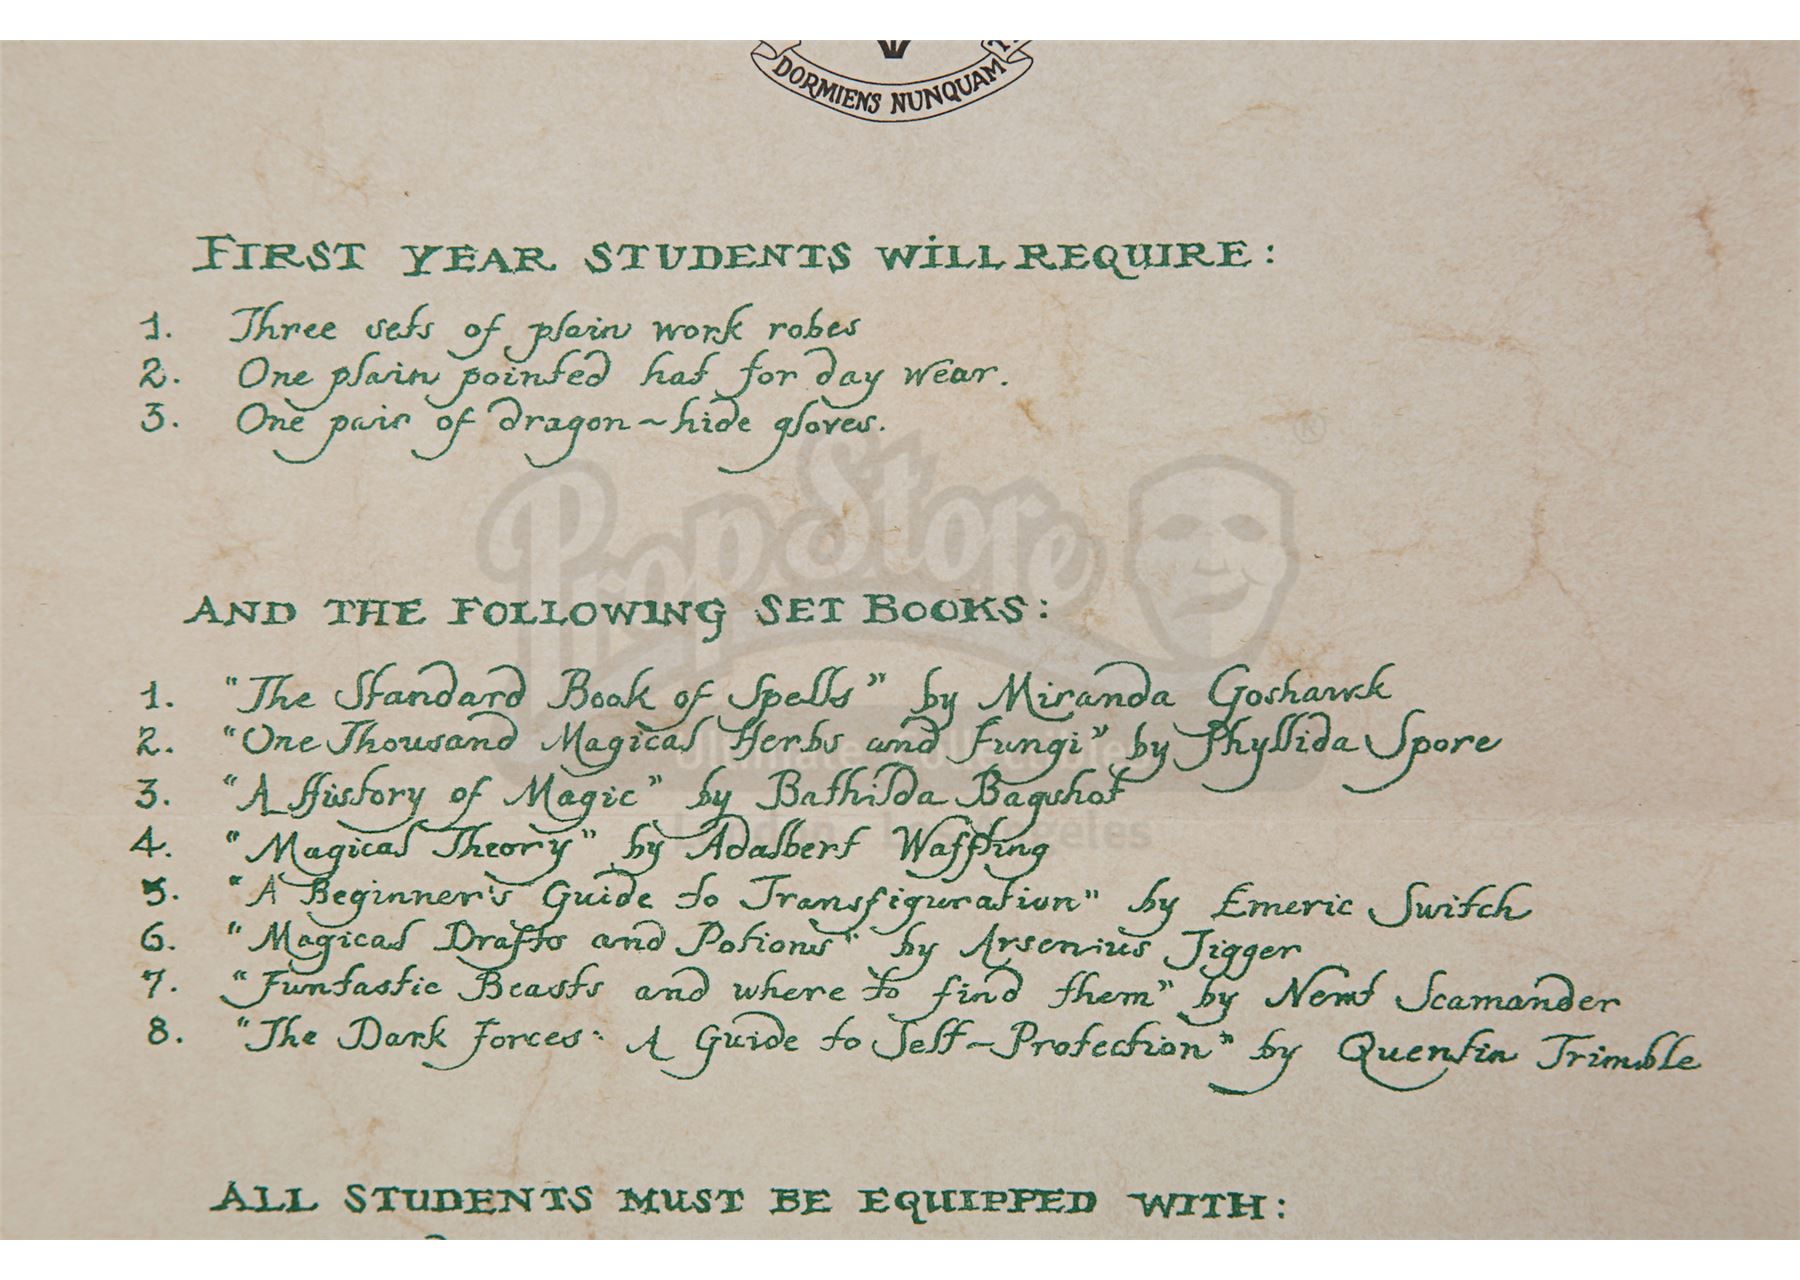 DORMIENS NUNQUAM
FIRST YEAR STUDENTS WILL REQUIRE:
1. Three sets of plain work robes
2. One plain pointed hat for day wear.
3. One pair of dragon~hide gloves.
PropStore ®
AND THE FOLLOWING SET BOOKS:
1. "The Standard Book of Spells" by Miranda Goshawk
2. "One Thousand Magical Herbs and Fungi" by Phyllida Spore
Ultimate Collectibles
3. "A History of Magic" by Bathilda Bagshot
London Los Angeles
4. "Magical Theory" by Adalbert Waffling
5. "A Beginner's Guide to Transfiguration" by Emeric Switch
6. "Magical Drafts and Potions" by Arsenius Jigger
7. "Funtastic Beasts and where to find them" by Newt Scamander
8. "The Dark Forces: A Guide to Self~Protection" by Quentin Trimble
ALL STUDENTS MUST BE EQUIPPED WITH: